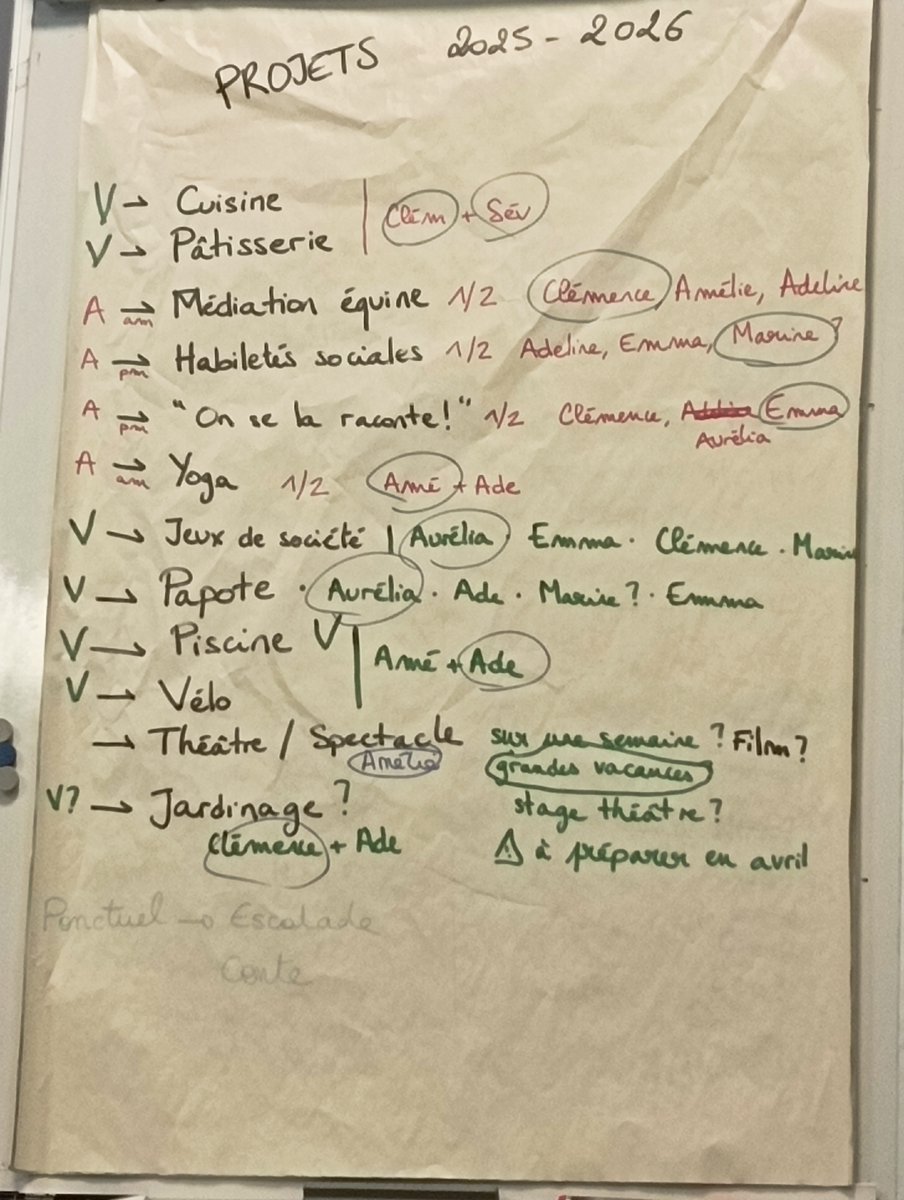 PROJETS 2025 - 2026
V → Cuisine | Clém + Sév
V → Pâtisserie
A → am Médiation équine 1/2 Clémence, Amélie, Adeline
A → pm Habiletés sociales 1/2 Adeline, Emma, Marine ?
A → pm "On se la raconte!" 1/2 Clémence, Emma
Aurélia
A → am Yoga 1/2 Amé + Ade
V → Jeux de société | Aurélia · Emma · Clémence · Marine
V → Papote · Aurélia · Ade · Marine ? · Emma
V → Piscine V | Amé + Ade
V → Vélo
→ Théâtre / Spectacle sur une semaine ? Film ?
Amélie grandes vacances
V? → Jardinage ? stage théâtre ?
Clémence + Ade ⚠ à préparer en avril
Ponctuel → Escalade
Conte